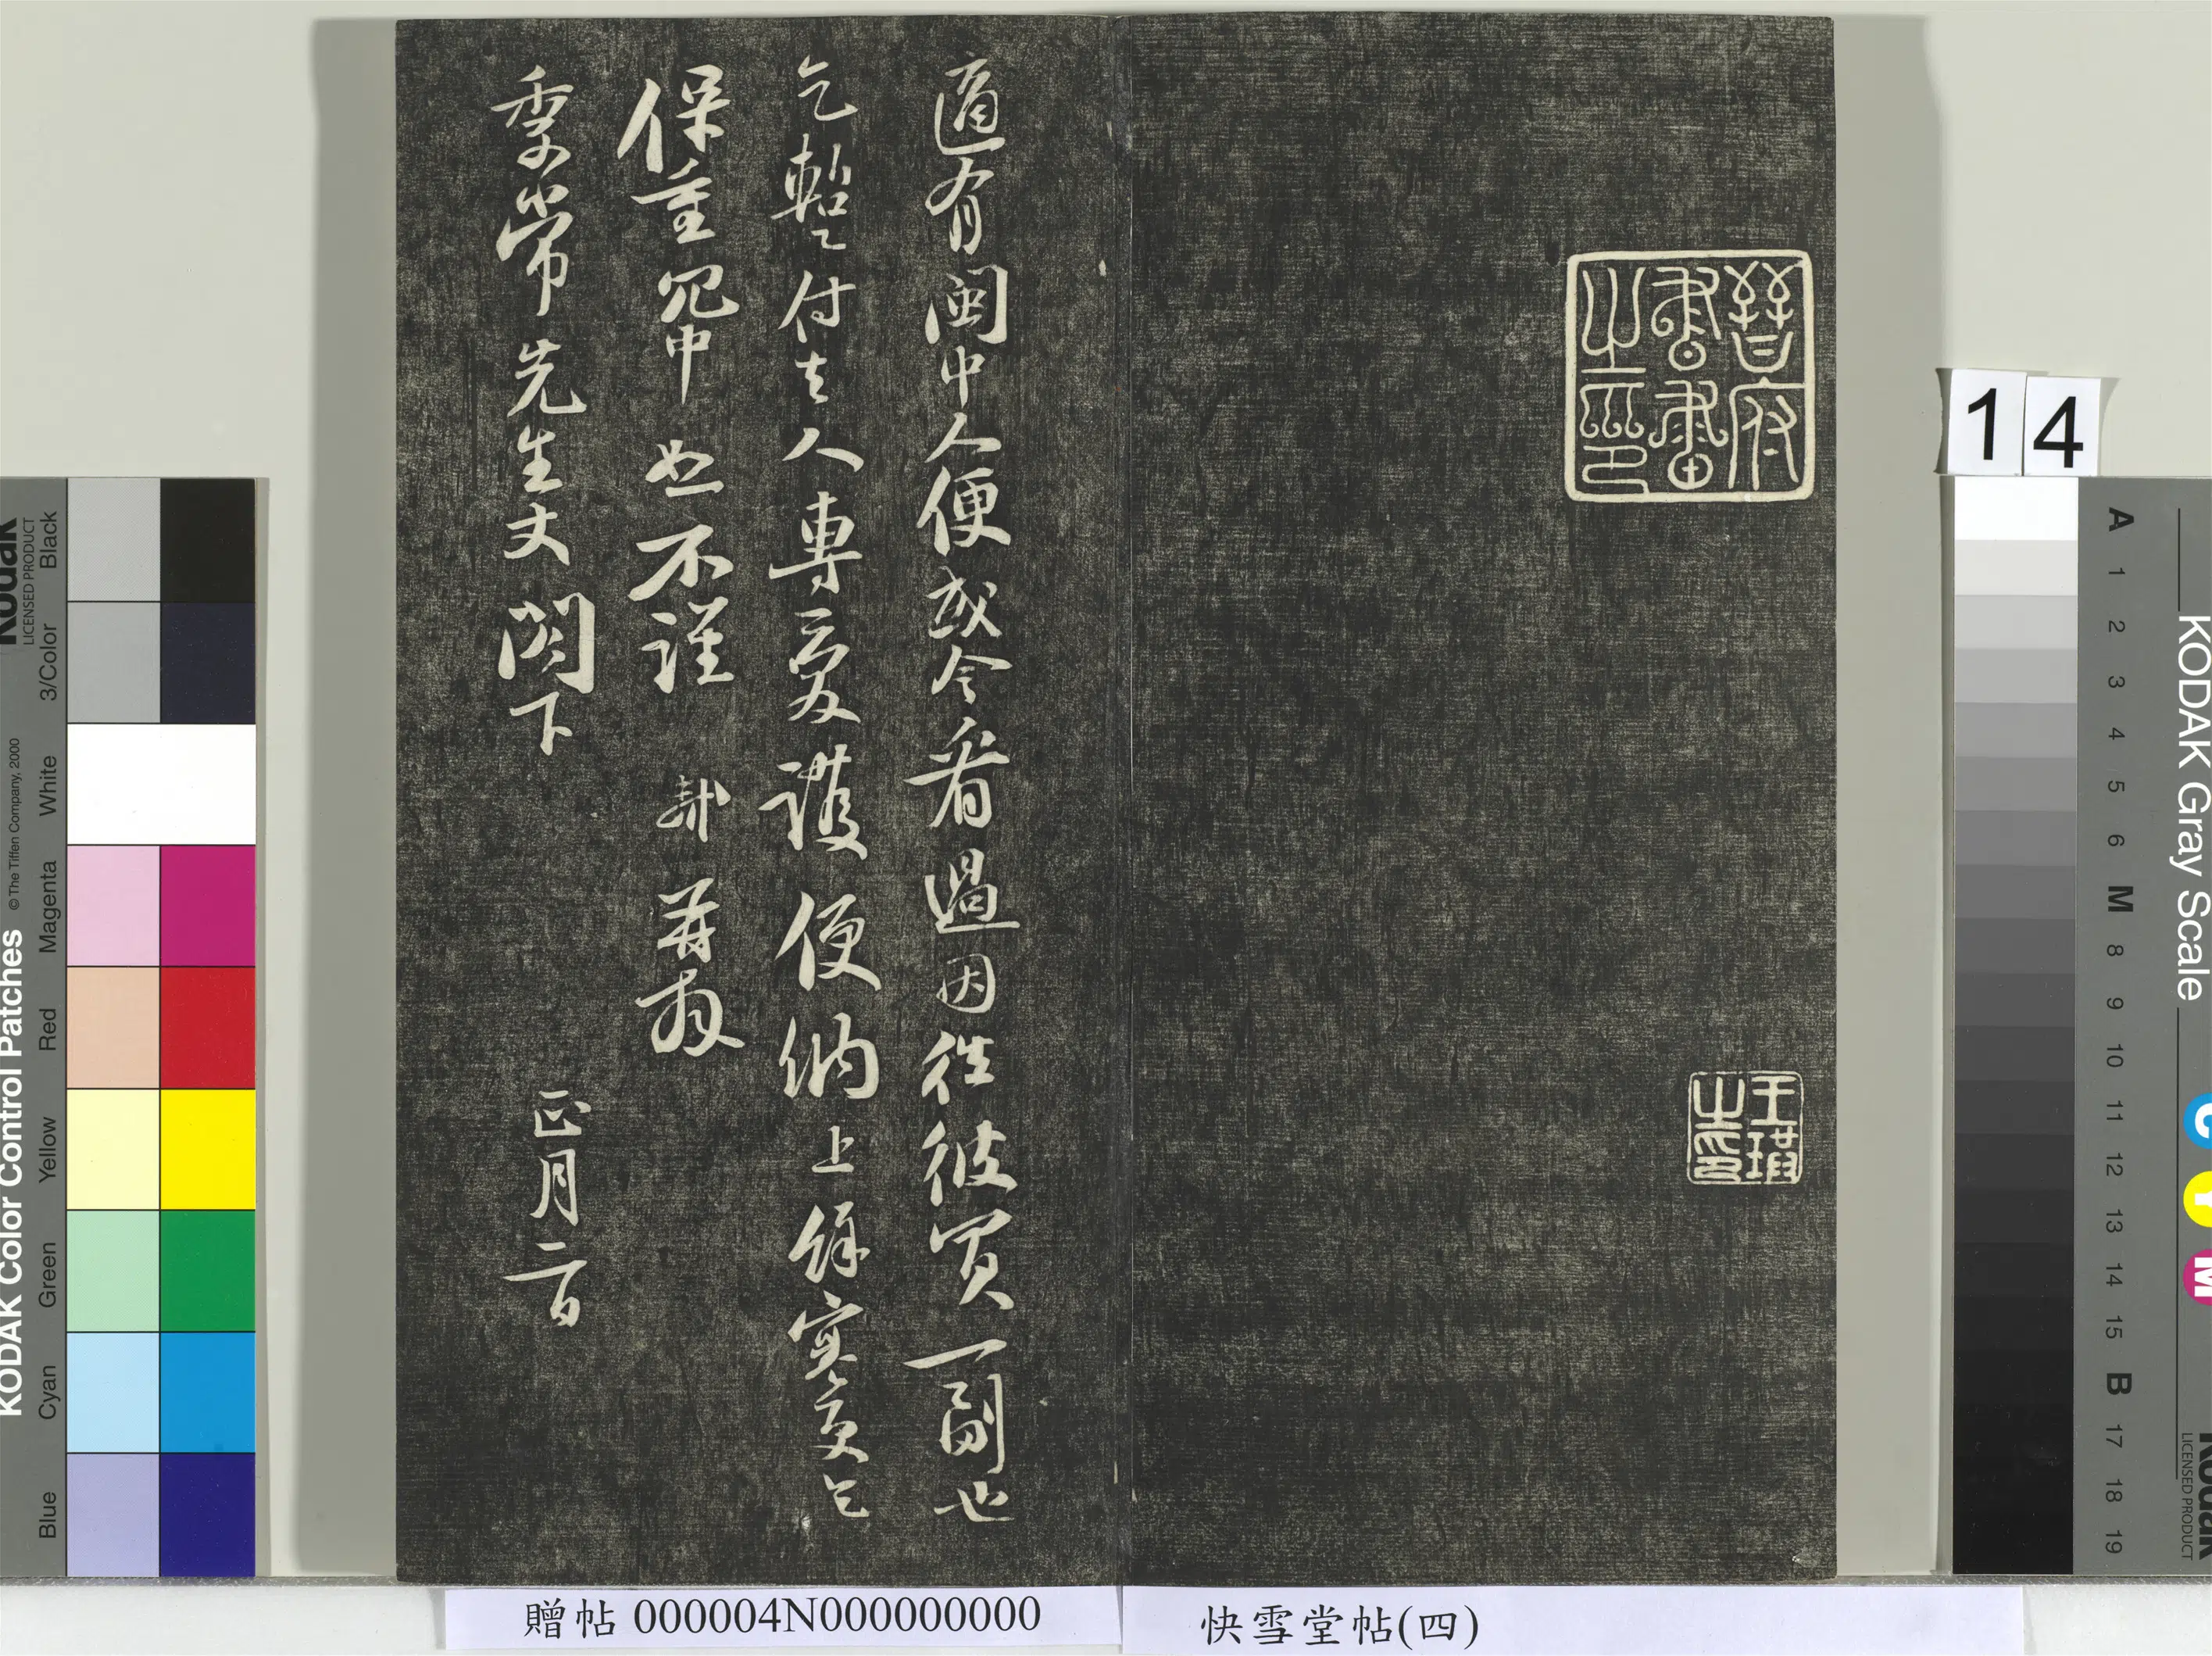 晉府書畫之印
適有閩中人便或令看過因往彼買一副也
乞暫付去人專愛護便納上餘寒更乞
保重冗中恕不謹 軾再拜
季常先生丈閣下 正月二日
贈帖 000004N000000000
快雪堂帖(四)
14
KODAK Color Control Patches
© The Tiffen Company, 2000
Kodak
LICENSED PRODUCT
Blue Cyan Green Yellow Red Magenta White 3/Color Black
KODAK Gray Scale
C Y M
Kodak
LICENSED PRODUCT
A 1 2 3 4 5 6 M 8 9 10 11 12 13 14 15 B 17 18 19